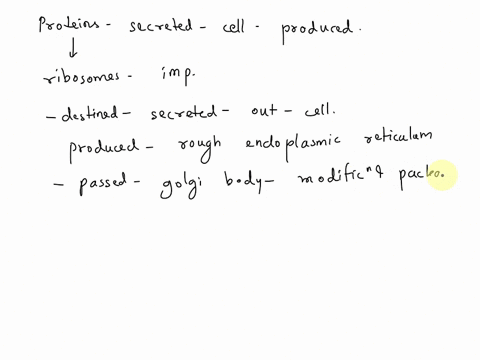 Proteins - secreted - cell - produced.
↓
ribosomes - imp.
- destined - secreted - out - cell.
produced - rough endoplasmic reticulam
- passed - golgi body - modificⁿ & packa.